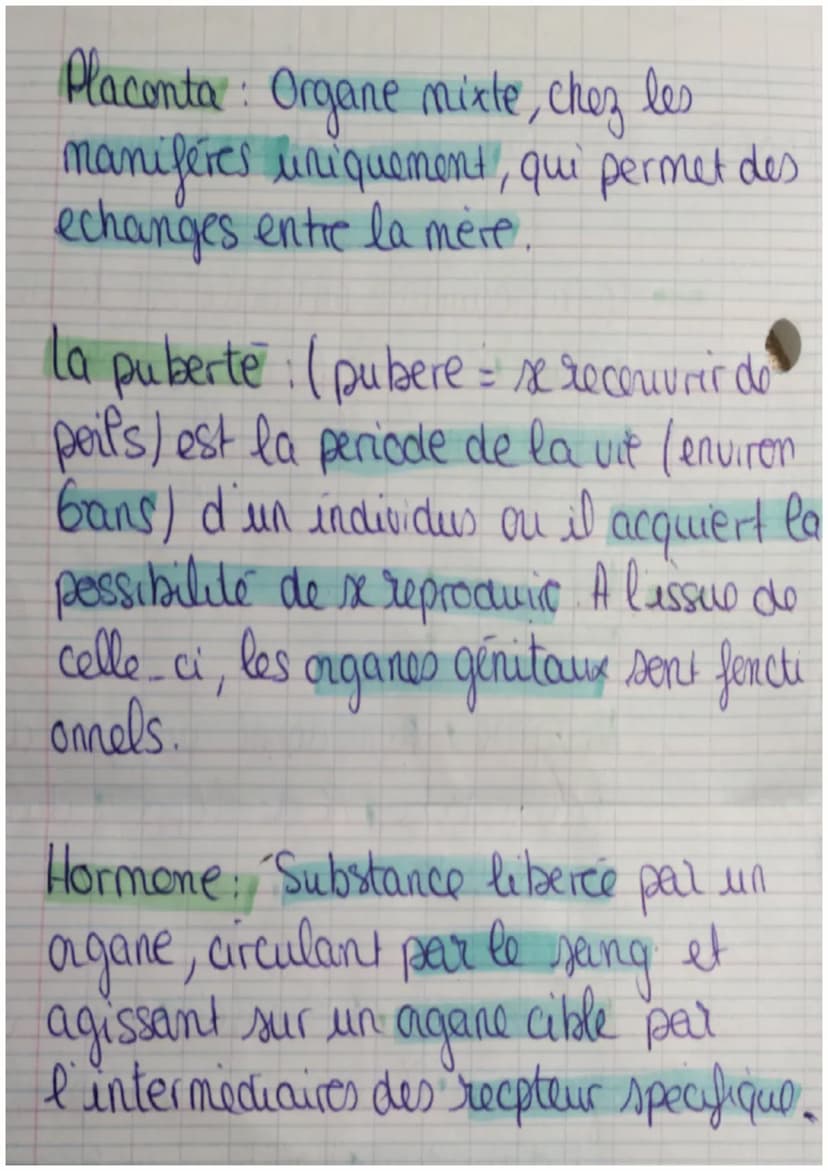 Placenta : Organe mixte, chez les
manifères uniquement, qui permet des
echanges entre la mère.
la puberté : ( pubere = se recouvrir de
poils) est la periode de la vie (environ
6ans) d'un individus ou il acquiert la
possibilité de se reproduire. A l'issue de
celle-ci, les organes génitaux sont foncti
onnels.
Hormone : Substance liberée par un
organe, circulant par le sang et
agissant sur un organe cible par
l'intermédiaires des recpteur specifique.